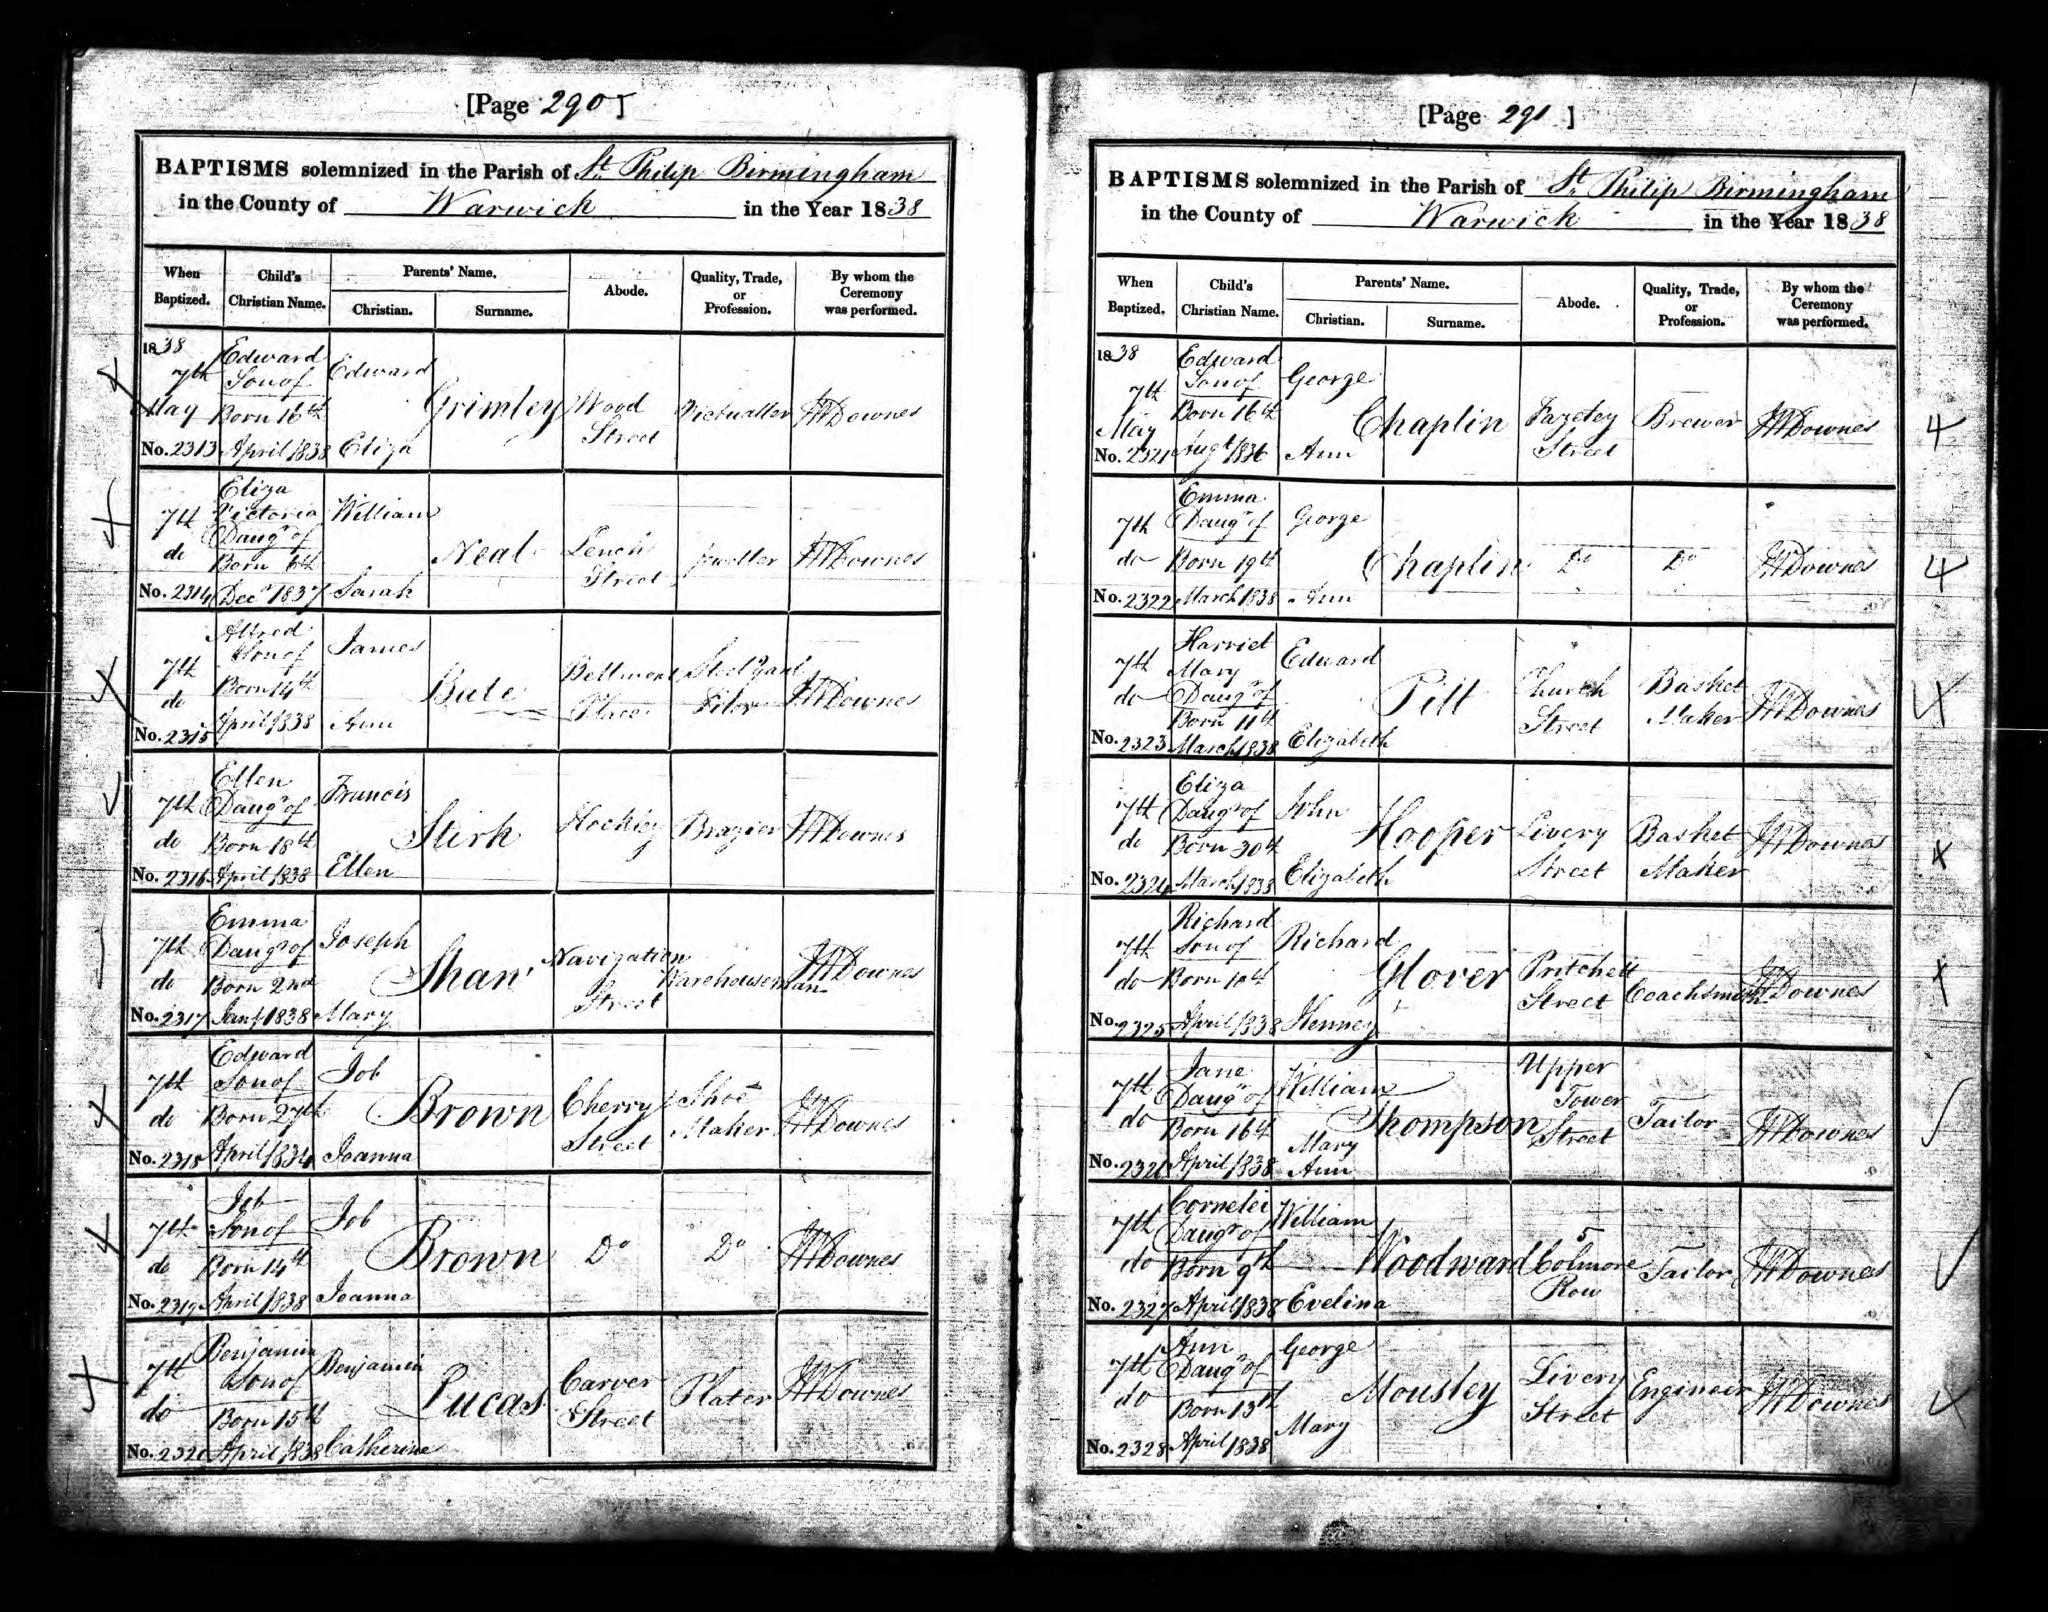 [Page 290]
BAPTISMS solemnized in the Parish of St. Philip Birmingham
in the County of Warwick in the Year 1838
When Baptized. Child's Christian Name. Parents' Name. Christian. Surname. Abode. Quality, Trade, or Profession. By whom the Ceremony was performed.
1838
7th May No. 2313 Edward Son of Born 16th April 1838 Edward Eliza Grimley Wood Street Victualler JW Downes
7th do No. 2314 Eliza Victoria Daugr of Born 6th Decr 1837 William Sarah Neal Lench Street Jeweller JW Downes
7th do No. 2315 Alfred Son of Born 14th April 1838 James Ann Bute Bellmont Place Steel Yard Filer JW Downes
7th do No. 2316 Ellen Daugr of Born 18th April 1838 Francis Ellen Stirk Hockley Brazier JW Downes
7th do No. 2317 Emma Daugr of Born 2nd Jany 1838 Joseph Mary Shaw Navigation Street Warehouseman JW Downes
7th do No. 2318 Edward Son of Born 27th April 1834 Job Joanna Brown Cherry Street Shoe Maker JW Downes
7th do No. 2319 Job Son of Born 14th April 1838 Job Joanna Brown Do Do JW Downes
7th do No. 2320 Benjamin Son of Born 15th April 1838 Benjamin Catherine Lucas Carver Street Plater JW Downes
[Page 291]
BAPTISMS solemnized in the Parish of St. Philip Birmingham
in the County of Warwick in the Year 1838
When Baptized. Child's Christian Name. Parents' Name. Christian. Surname. Abode. Quality, Trade, or Profession. By whom the Ceremony was performed.
1838
7th May No. 2321 Edward Son of Born 16th Augt 1836 George Ann Chaplin Fazeley Street Brewer JW Downes
7th do No. 2322 Emma Daugr of Born 19th March 1838 George Ann Chaplin Do Do JW Downes
7th do No. 2323 Harriet Mary Daugr of Born 11th March 1838 Edward Elizabeth Pitt Church Street Basket Maker JW Downes
7th do No. 2324 Eliza Daugr of Born 30th March 1838 John Elizabeth Hooper Livery Street Basket Maker JW Downes
7th do No. 2325 Richard Son of Born 10th April 1838 Richard Henney Glover Pritchett Street Coachsmith JW Downes
7th do No. 2326 Jane Daugr of Born 16th April 1838 William Mary Ann Thompson Upper Tower Street Tailor JW Downes
7th do No. 2327 Cornelei Daugr of Born 9th April 1838 William Evelina Woodward 5 Colmore Row Tailor JW Downes
7th do No. 2328 Ann Daugr of Born 13th April 1838 George Mary Mousley Livery Street Engineer JW Downes